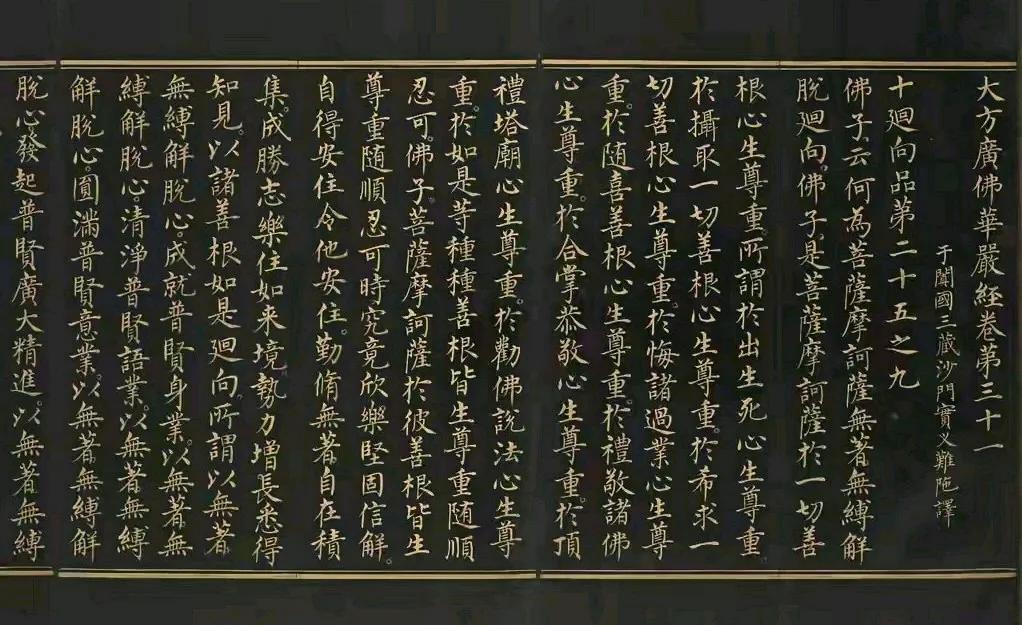 大方廣佛華嚴經卷第三十一
于闐國三藏沙門實叉難陁譯
十廻向品第二十五之九
佛子云何為菩薩摩訶薩無著無縛解
脫廻向。佛子是菩薩摩訶薩於一切善
根心生尊重。所謂於出生死心生尊重
於攝取一切善根心生尊重。於希求一
切善根心生尊重。於悔諸過業心生尊
重。於随喜善根心生尊重。於禮敬諸佛
心生尊重。於合掌恭敬心生尊重。於頂
禮塔廟心生尊重。於勸佛說法心生尊
重。於如是等種種善根皆生尊重随順
忍可。佛子菩薩摩訶薩於彼善根皆生
尊重随順忍可時究竟欣樂堅固信解。
自得安住令他安住。勤脩無著自在積
集。成勝志樂住如来境勢力增長悉得
知見。以諸善根如是廻向。所謂以無著
無縛解脫心成就普賢身業。以無著無
縛解脫心。清淨普賢語業。以無著無縛
解脫心。圓滿普賢意業。以無著無縛解
脫心發起普賢廣大精進以無著無縛